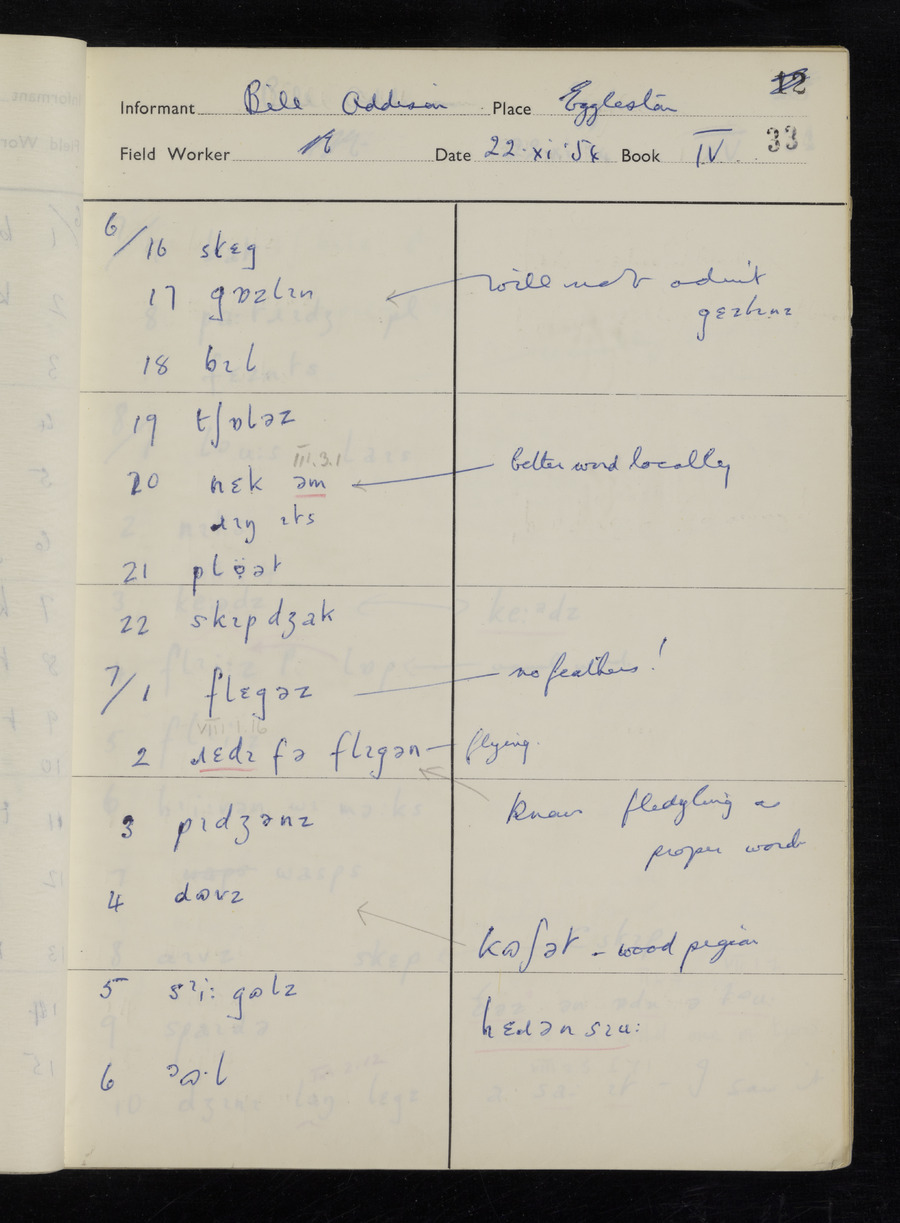 12
Informant Bill Addison Place Eggleston
Field Worker Date 22·xi·'54 Book IV 33
6/16 skɛg
17 gɒzlɪn will not admit
gɛzlɪnz
18 bɪl
19 tʃɒləz
III.3.1
20 nɛk əm better word locally
ɹɪŋ ɪts
21 plö̤ət
22 skɪpdʒak
7/1 flɛgəz no feathers!
VIII.1.16
2 ɹɛdɪ fə flɪgən – flying.
know fledgling as
3 pɪdʒənz proper word
4 dɷvz
kɷʃət - wood pigeon
5 sᶦi: gɷlz
hɛɹənsɪu:
6 ᵊɷ·l